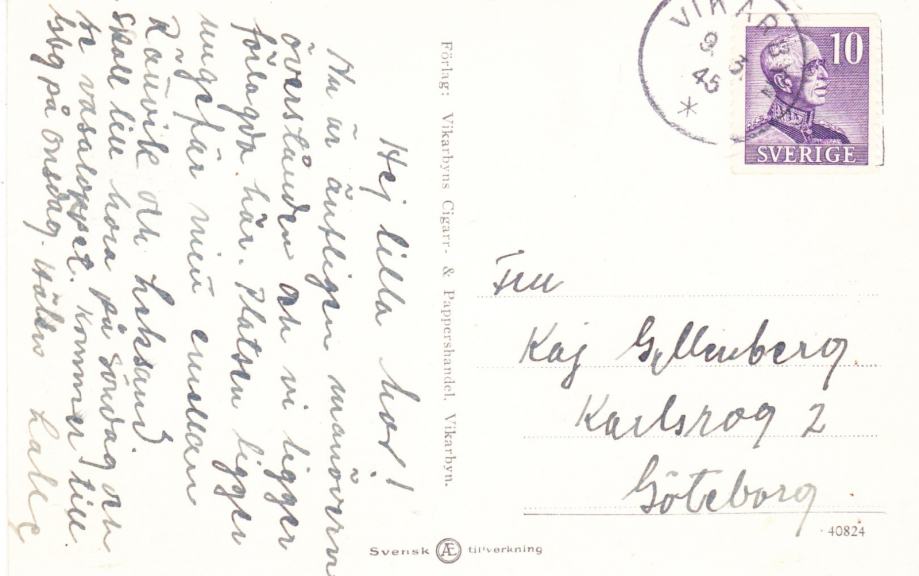 Hej lilla hon!
Nu är äntligen manövern
överstånden och vi ligger
förlagda här. Platsen ligger
ungefär mitt emellan
Rättvik och Leksand.
Skall till Mora på Söndag och
se vasaloppet. Kommer till
Gbg på Onsdag. Hälsn Lalle
Förlag: Vikarbyns Cigarr- & Pappershandel, Vikarbyn.
VIKARBYN
9 3
45
10
SVERIGE
Fru
Kaj Gyllenberg
Karlsrog 2
Göteborg
40824
Svensk Æ tillverkning